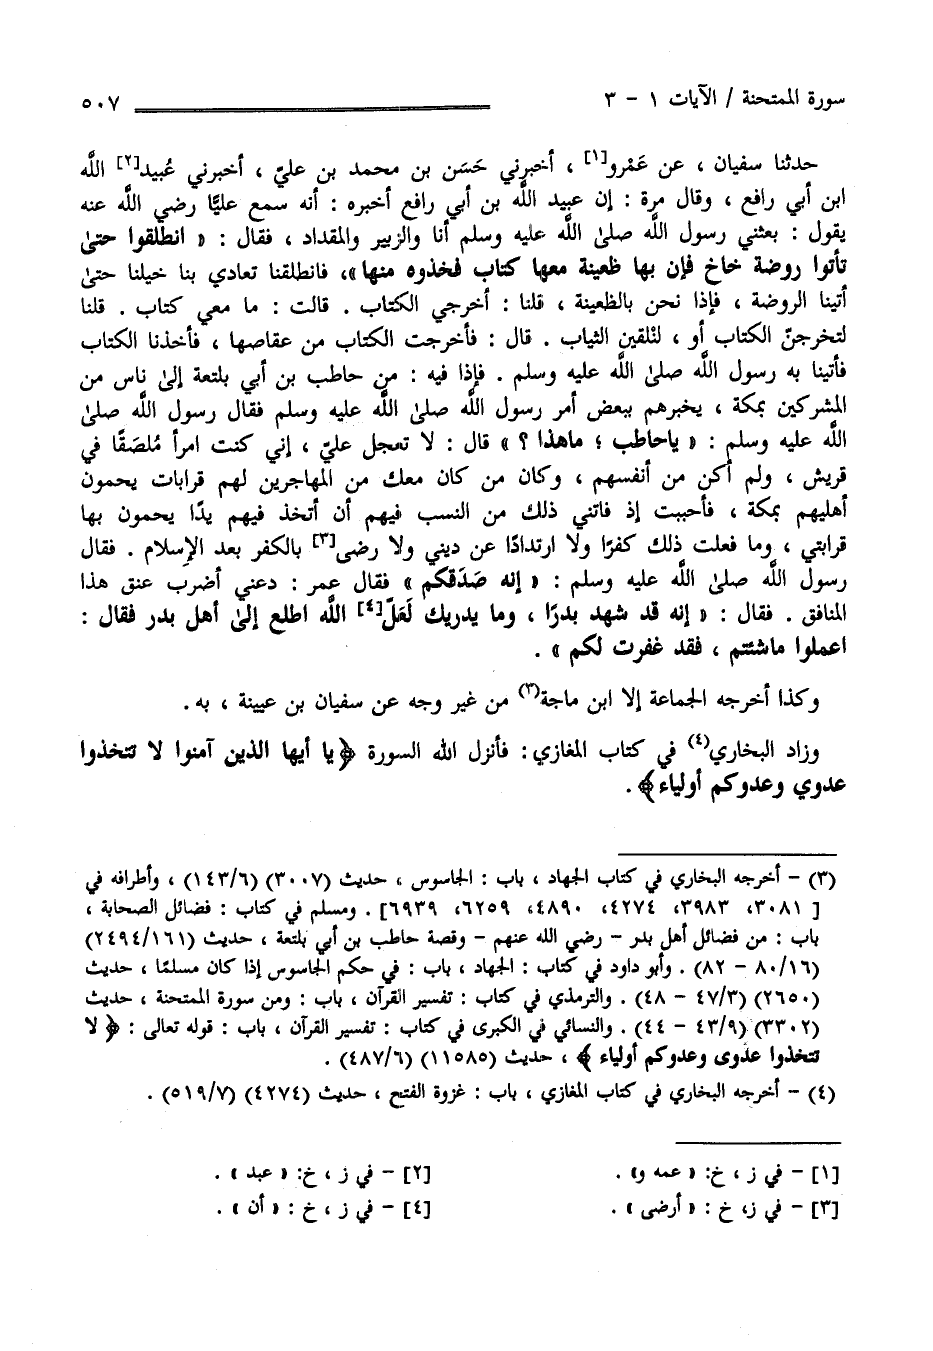 سورة الممتحنة / الآيات ١ - ٣ ٥٠٧
حدثنا سفيان ، عن عَمْرو[١] ، أخبرني حَسَن بن محمد بن عليّ ، أخبرني عُبيد[٢] اللَّه
ابن أبي رافع ، وقال مرة : إن عبيد اللَّه بن أبي رافع أخبره : أنه سمع عليًّا رضي اللَّه عنه
يقول : بعثني رسول اللَّه صلىٰ اللَّه عليه وسلم أنا والزبير والمقداد ، فقال : « انطلقوا حتىٰ
تأتوا روضة خاخ فإن بها ظعينة معها كتاب فخذوه منها »، فانطلقنا تعادي بنا خيلنا حتىٰ
أتينا الروضة ، فإذا نحن بالظعينة ، قلنا : أخرجي الكتاب . قالت : ما معي كتاب . قلنا
لتخرجنّ الكتاب أو ، لنُلقين الثياب . قال : فأخرجت الكتاب من عقاصها ، فأخذنا الكتاب
فأتينا به رسول اللَّه صلىٰ اللَّه عليه وسلم . فإذا فيه : من حاطب بن أبي بلتعة إلىٰ ناس من
المشركين بمكة ، يخبرهم ببعض أمر رسول اللَّه صلىٰ اللَّه عليه وسلم فقال رسول اللَّه صلىٰ
اللَّه عليه وسلم : « ياحاطب ؛ ماهذا ؟ » قال : لا تعجل عليّ ، إني كنت امرأ مُلصَقًا في
قريش ، ولم أكن من أنفسهم ، وكان من كان معك من المهاجرين لهم قرابات يحمون
أهليهم بمكة ، فأحببت إذ فاتني ذلك من النسب فيهم أن أتخذ فيهم يدًا يحمون بها
قرابتي ، وما فعلت ذلك كفرًا ولا ارتدادًا عن ديني ولا رضى[٣] بالكفر بعد الإسلام . فقال
رسول اللَّه صلىٰ اللَّه عليه وسلم : « إنه صَدَقكم » فقال عمر : دعني أضرب عنق هذا
المنافق . فقال : « إنه قد شهد بدرًا ، وما يدريك لَعَلّ[٤] اللَّه اطلع إلىٰ أهل بدر فقال :
اعملوا ماشئتم ، فقد غفرت لكم » .
وكذا أخرجه الجماعة إلا ابن ماجة(٣) من غير وجه عن سفيان بن عيينة ، به.
وزاد البخاري(٤) في كتاب المغازي: فأنزل الله السورة ﴿يا أيها الذين آمنوا لا تتخذوا
عدوي وعدوكم أولياء﴾ .
(٣) - أخرجه البخاري في كتاب الجهاد ، باب : الجاسوس ، حديث (٣٠٠٧) (١٤٣/٦) ، وأطرافه في
[ ٣٠٨١، ٣٩٨٣، ٤٢٧٤، ٤٨٩٠، ٦٢٥٩، ٦٩٣٩] . ومسلم في كتاب : فضائل الصحابة ،
باب : من فضائل أهل بدر - رضي الله عنهم - وقصة حاطب بن أبي بلتعة ، حديث (٢٤٩٤/١٦١)
(٨٠/١٦ - ٨٢) . وأبو داود في كتاب : الجهاد ، باب : في حكم الجاسوس إذا كان مسلمًا ، حديث
(٢٦٥٠) (٤٧/٣ - ٤٨) . والترمذي في كتاب : تفسير القرآن ، باب : ومن سورة الممتحنة ، حديث
(٣٣٠٢) (٤٣/٩ - ٤٤) . والنسائي في الكبرى في كتاب : تفسير القرآن ، باب : قوله تعالى : ﴿ لا
تتخذوا عدوى وعدوكم أولياء ﴾ ، حديث (١١٥٨٥) (٤٨٧/٦) .
(٤) - أخرجه البخاري في كتاب المغازي ، باب : غزوة الفتح ، حديث (٤٢٧٤) (٥١٩/٧) .
[١] - في ز ، خ: « عمه و» . [٢] - في ز ، خ: « عبد » .
[٣] - في ز، خ : « أرضى » . [٤] - في ز ، خ : « أن » .